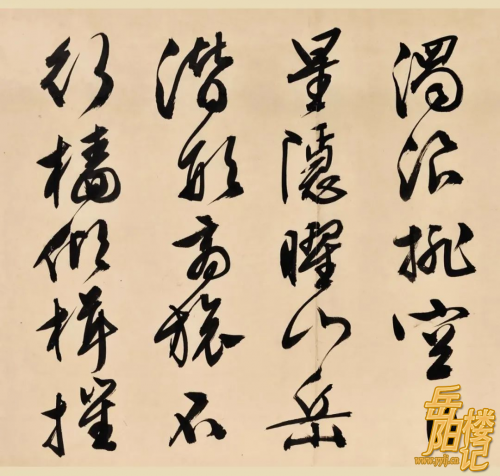 濁浪排空
星隱曜山岳
潜形商旅不
行檣傾楫摧
岳阳楼记
www.yylj.cn